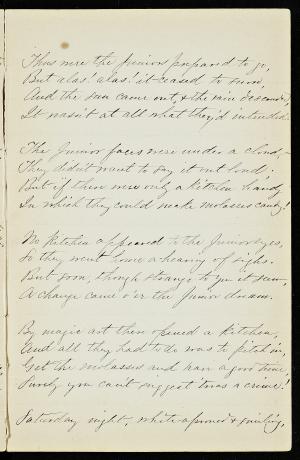 Thus were the Juniors prepared to go,
But alas! alas! it ceased to snow,
And the sun came out, & the rain descended,
It wasn't at all what they'd intended.
The Junior faces were under a cloud,—
They didn't want to say it out loud,
But if there were only a kitchen handy
In which they could make molasses candy!
No kitchen appeared to the Junior eyes,
So they went home a heaving of sighs.
But soon, though strange to you it seem,
A change came o'er the Junior dream.
By magic art then opened a kitchen,
And all they had to do was to pitch in,
Get the molasses and have a good time,
Surely you can't suggest 'twas a crime!
Saturday night, white-aproned & smiling,